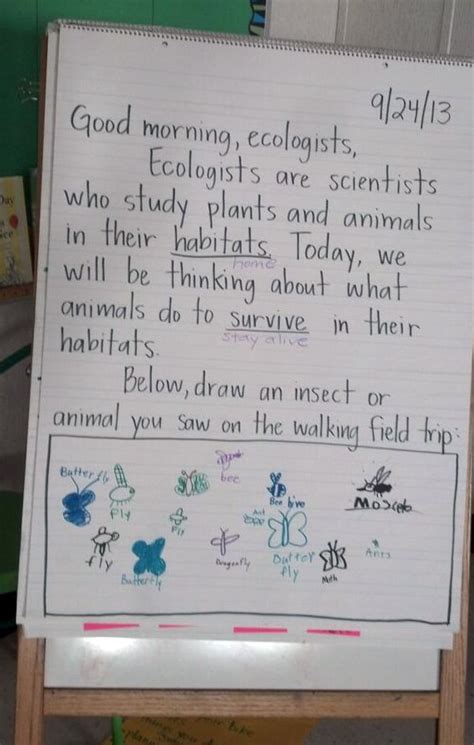 9/24/13
Good morning, ecologists,
Ecologists are scientists
who study plants and animals
in their habitats. Today, we
home
will be thinking about what
animals do to survive in their
stay alive
habitats.
Below, draw an insect or
animal you saw on the walking field trip:
bee
Butterfly
fly
Bee
Ant
Fly
fly
Butterfly
Dragonfly
Butter
fly
Moth
Ants